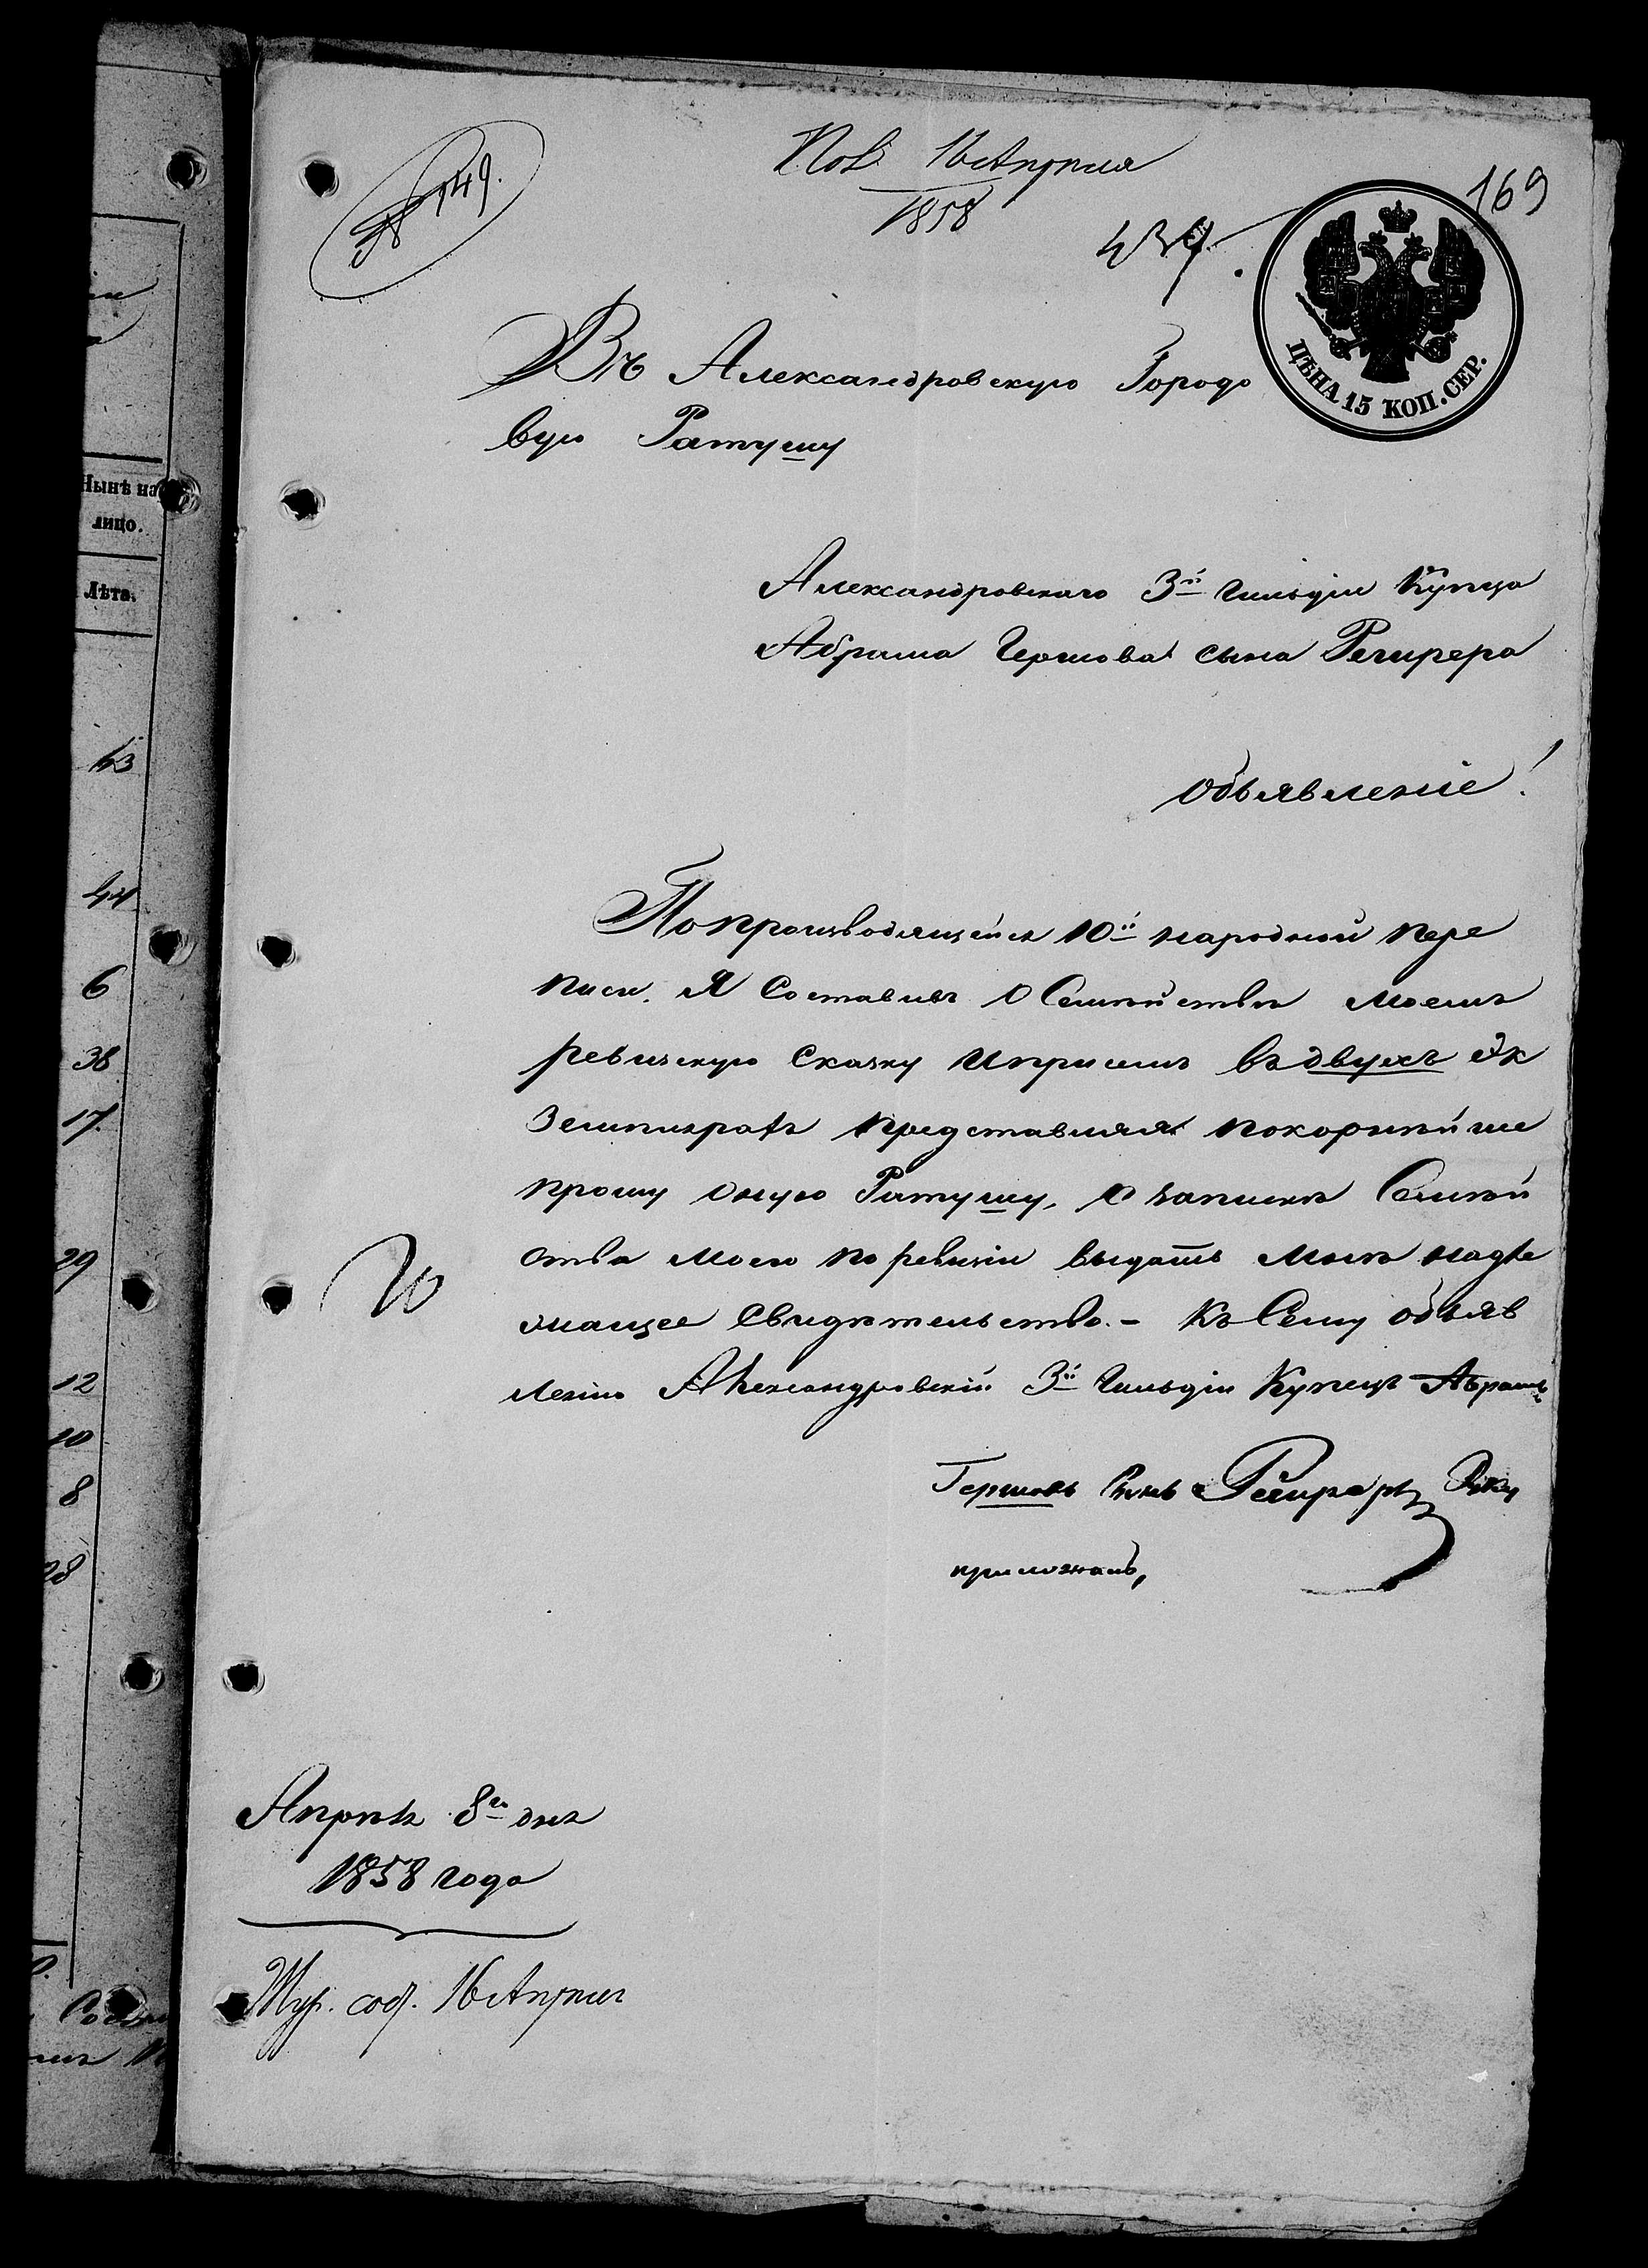 № 149.
Пов 16 Апреля
1858
169
437.
ЦѢНА 15 КОП. СЕР.
Въ Александровскую Городо
вую Ратушу
Александровскаго 3й гильдіи Купца
Абрама Гершова сына Регирера
Объявленіе!
По производящейся 10й народной пере
писи, Я Составивъ О Семѣйствѣ моемъ
ревизскую Сказку и при семъ въ двухъ эк
земпляра представляя покорнѣйше
прошу оную Ратушу, О запискѣ Семѣй
ства моего по ревизіи выдать мнѣ надле
жащее Свидѣтельство. - Къ Сему объяв
ленію Александровскій 3й Гильдіи Купецъ Абрамъ
Гершовъ Сынъ Региреръ Руку
приложилъ,
Апрѣля 8го дня
1858 года
Жур. сос. 16 Апреля
Нынѣ на
лицо.
Лѣта.
43
44
6
38
17
29
12
10
8
28